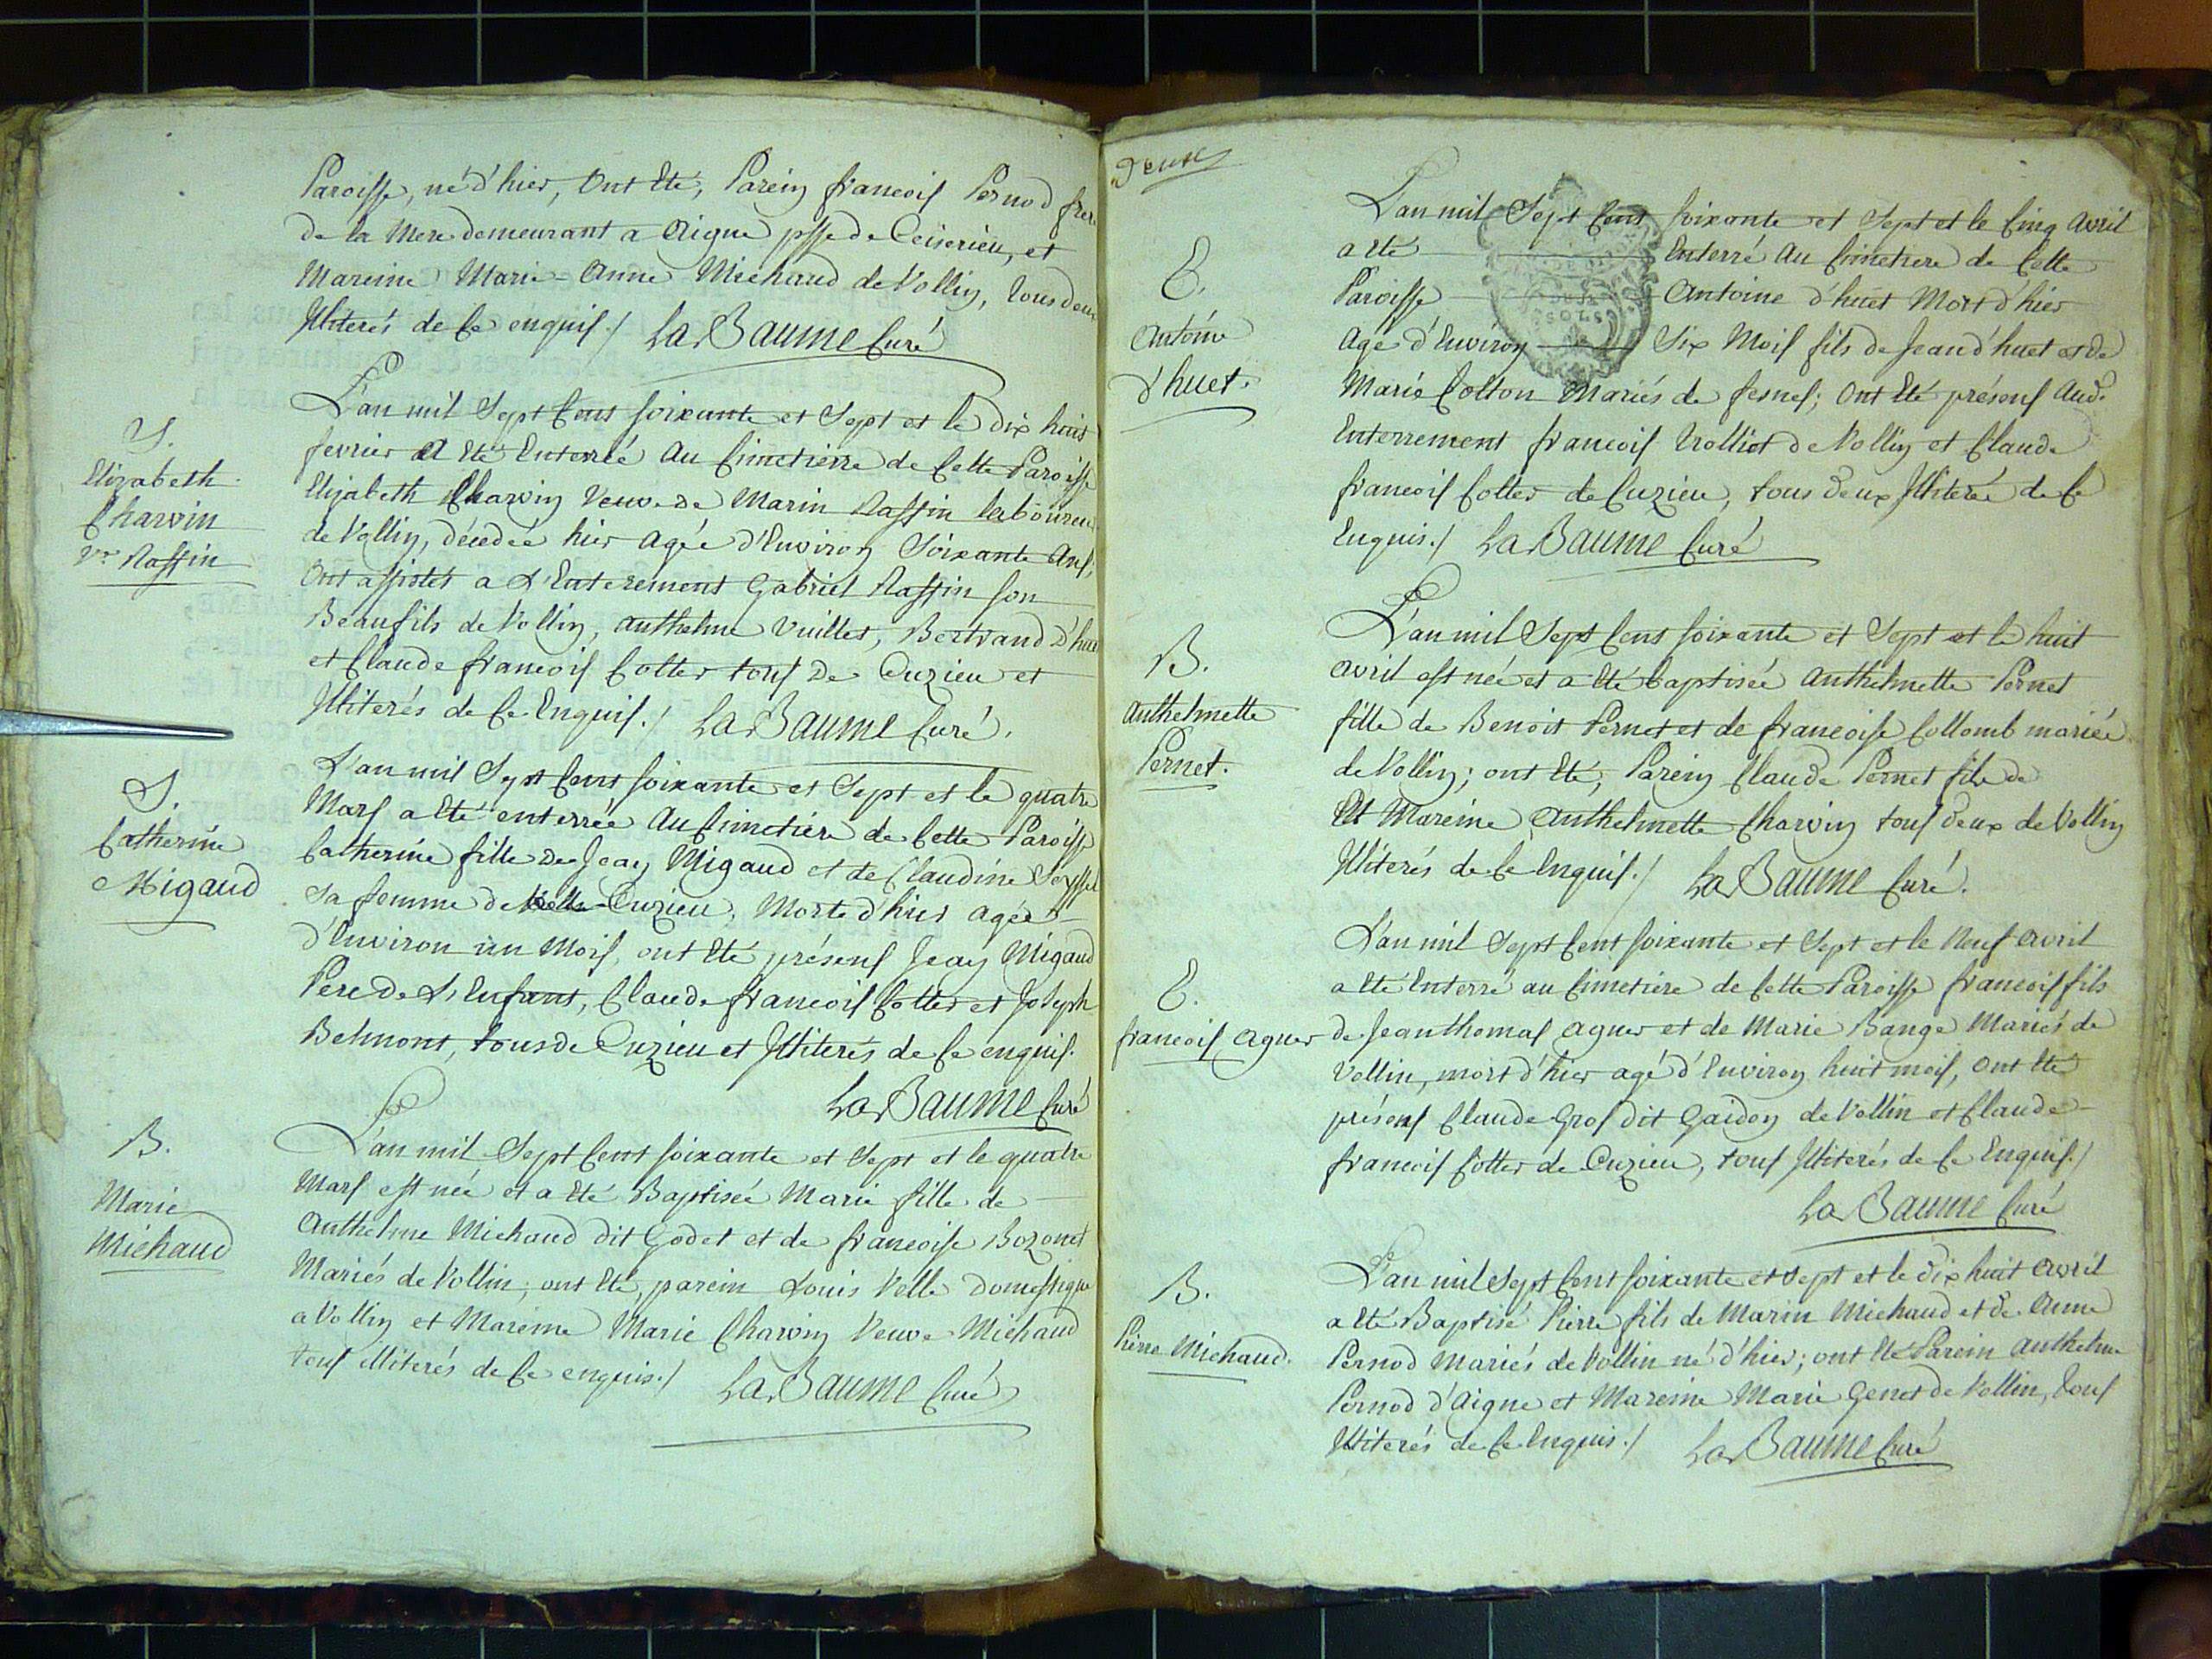 Paroisse, né d'hier, Ont Eté, Parein francois Pernod frere
de la Mere demeurant a Aigne psse de Ceiserieu, et
Mareine Marie-Anne Michaud de Vollin, tous deux
Illiterés de Ce enquis./. La Baume Curé
S.
Elizabeth
Charvin
Ve Raffin
L'an mil Sept Cens soixante et Sept et le dix huit
fevrier a Eté Enterrée Au Cimetierre de Cette Paroisse
Elizabeth Charvin Veuve de Marin Raffin laboureur
de Vollin, décedée hier agée d'Environ Soixante Ans,
Ont assistés a L'Enterement Gabriel Raffin son
Beaufils de Vollin, Anthelme Vuillet, Bertrand D'huet
et Claude francois Cotter tous De Cuzieu et
Illiterés de Ce Enquis./. La Baume Curé.
S.
Catherine
Migaud
L'an mil Sept Cens soixante et Sept et le quatre
Mars a Eté enterrée Au Cimetiére de Cette Paroisse
Catherine fille De Jean Migaud et de Claudine Seyssel
Sa femme de Cuzieu, Morte d'hier agée
d'Environ un Mois, ont Eté présens Jean Migaud
Pere De L'Enfant, Claude francois Cotter et Joseph
Belmont, tous de Cuzieu et Illiterés de Ce enquis.
La Baume Curé
B.
Marie
Michaud
L'an mil Sept Cens soixante et Sept et le quatre
Mars est née et a Eté Baptisée Marie fille de
Anthelme Michaud dit Godet et de francoise Bozonet
Mariés de Vollin; ont Eté, parein Louis Velle Domestique
a Vollin et Mareine Marie Charvin Veuve Michaud
tous illiterés de Ce enquis./. La Baume Curé
Deux
E.
Antoine
d'huet.
L'an mil Sept Cens soixante et Sept et le Cinq Avril
a Eté Enterré Au Cimetiere de Cette
Paroisse Antoine d'huet Mort d'hier
Agé d'Environ Six Mois fils de Jean d'huet et de
Marie Cotton Mariés de ; Ont Eté présens Aud.
Enterrement francois Trolliet de Vollin et Claude
francois Cotter de Cuzieu, tous deux Illiterés de Ce
Enquis./. La Baume Curé
B.
Anthelmette
Pernet.
L'an mil Sept Cens soixante et Sept et le huit
Avril est née et a Eté baptisée Anthelmette Pernet
fille de Benoit Pernet et de francoise Collomb mariés
de Vollin; ont Eté, Parein Claude Pernet fils de
Et Mareine Anthelmette Charvin tous deux de Vollin
Illiterés de Ce Enquis./. La Baume Curé.
E.
francois Agner
L'an mil Sept Cens soixante et Sept et le Neuf Avril
a Eté Enterré au Cimetiere de Cette Paroisse francois fils
de Jean thomas Agner et de Marie Bange Mariés de
Vollin, mort d'hier agé d'Environ huit mois, Ont Eté
présens Claude Gros dit Gaidon de Vollin et Claude
francois Cotter de Cuzieu, tous Illiterés de Ce Enquis./.
La Baume Curé
B.
Pierre Michaud.
L'an mil Sept Cens soixante et sept et le dix huit Avril
a Eté Baptisé Pierre fils de Marin Michaud et de Anne
Pernod Mariés de Vollin né d'hier; ont Eté Parein Anthelme
Pernod d'Aigne et Mareine Marie Genet de Vollin, tous
Illiterés de Ce Enquis./. La Baume Curé